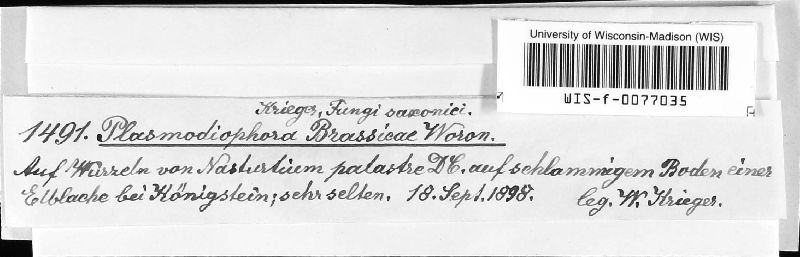 University of Wisconsin-Madison (WIS)
WIS-f-0077035
Krieger, Fungi saxonici.
1491. Plasmodiophora Brassicae Woron.
Auf Wurzeln von Nasturtium palastre DC. auf schlammigem Boden einer
Elblache bei Königstein; sehr selten. 18. Sept. 1898. leg. W. Krieger.